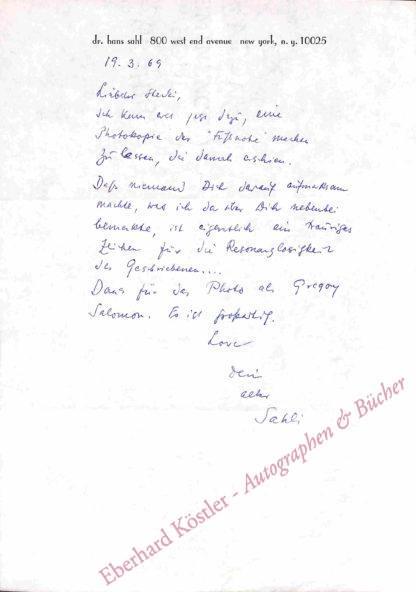 dr. hans sahl 800 west end avenue new york, n. y. 10025
19. 3. 69
Liebster
ich kam erst jetzt dazu, eine
Photokopie der "Fußnote" machen
zu lassen, die damals erschien.
Dass niemand Dich darauf aufmerksam
machte, was ich da über Dich nebenbei
bemerkte, ist eigentlich ein trauriges
Zeichen für die Resonanzlosigkeit
des Geschriebenen....
Dank für das Photo als Gregory
Salomon. Es ist großartig.
Love
Dein
alter
Sahli
Eberhard Köstler - Autographen & Bücher